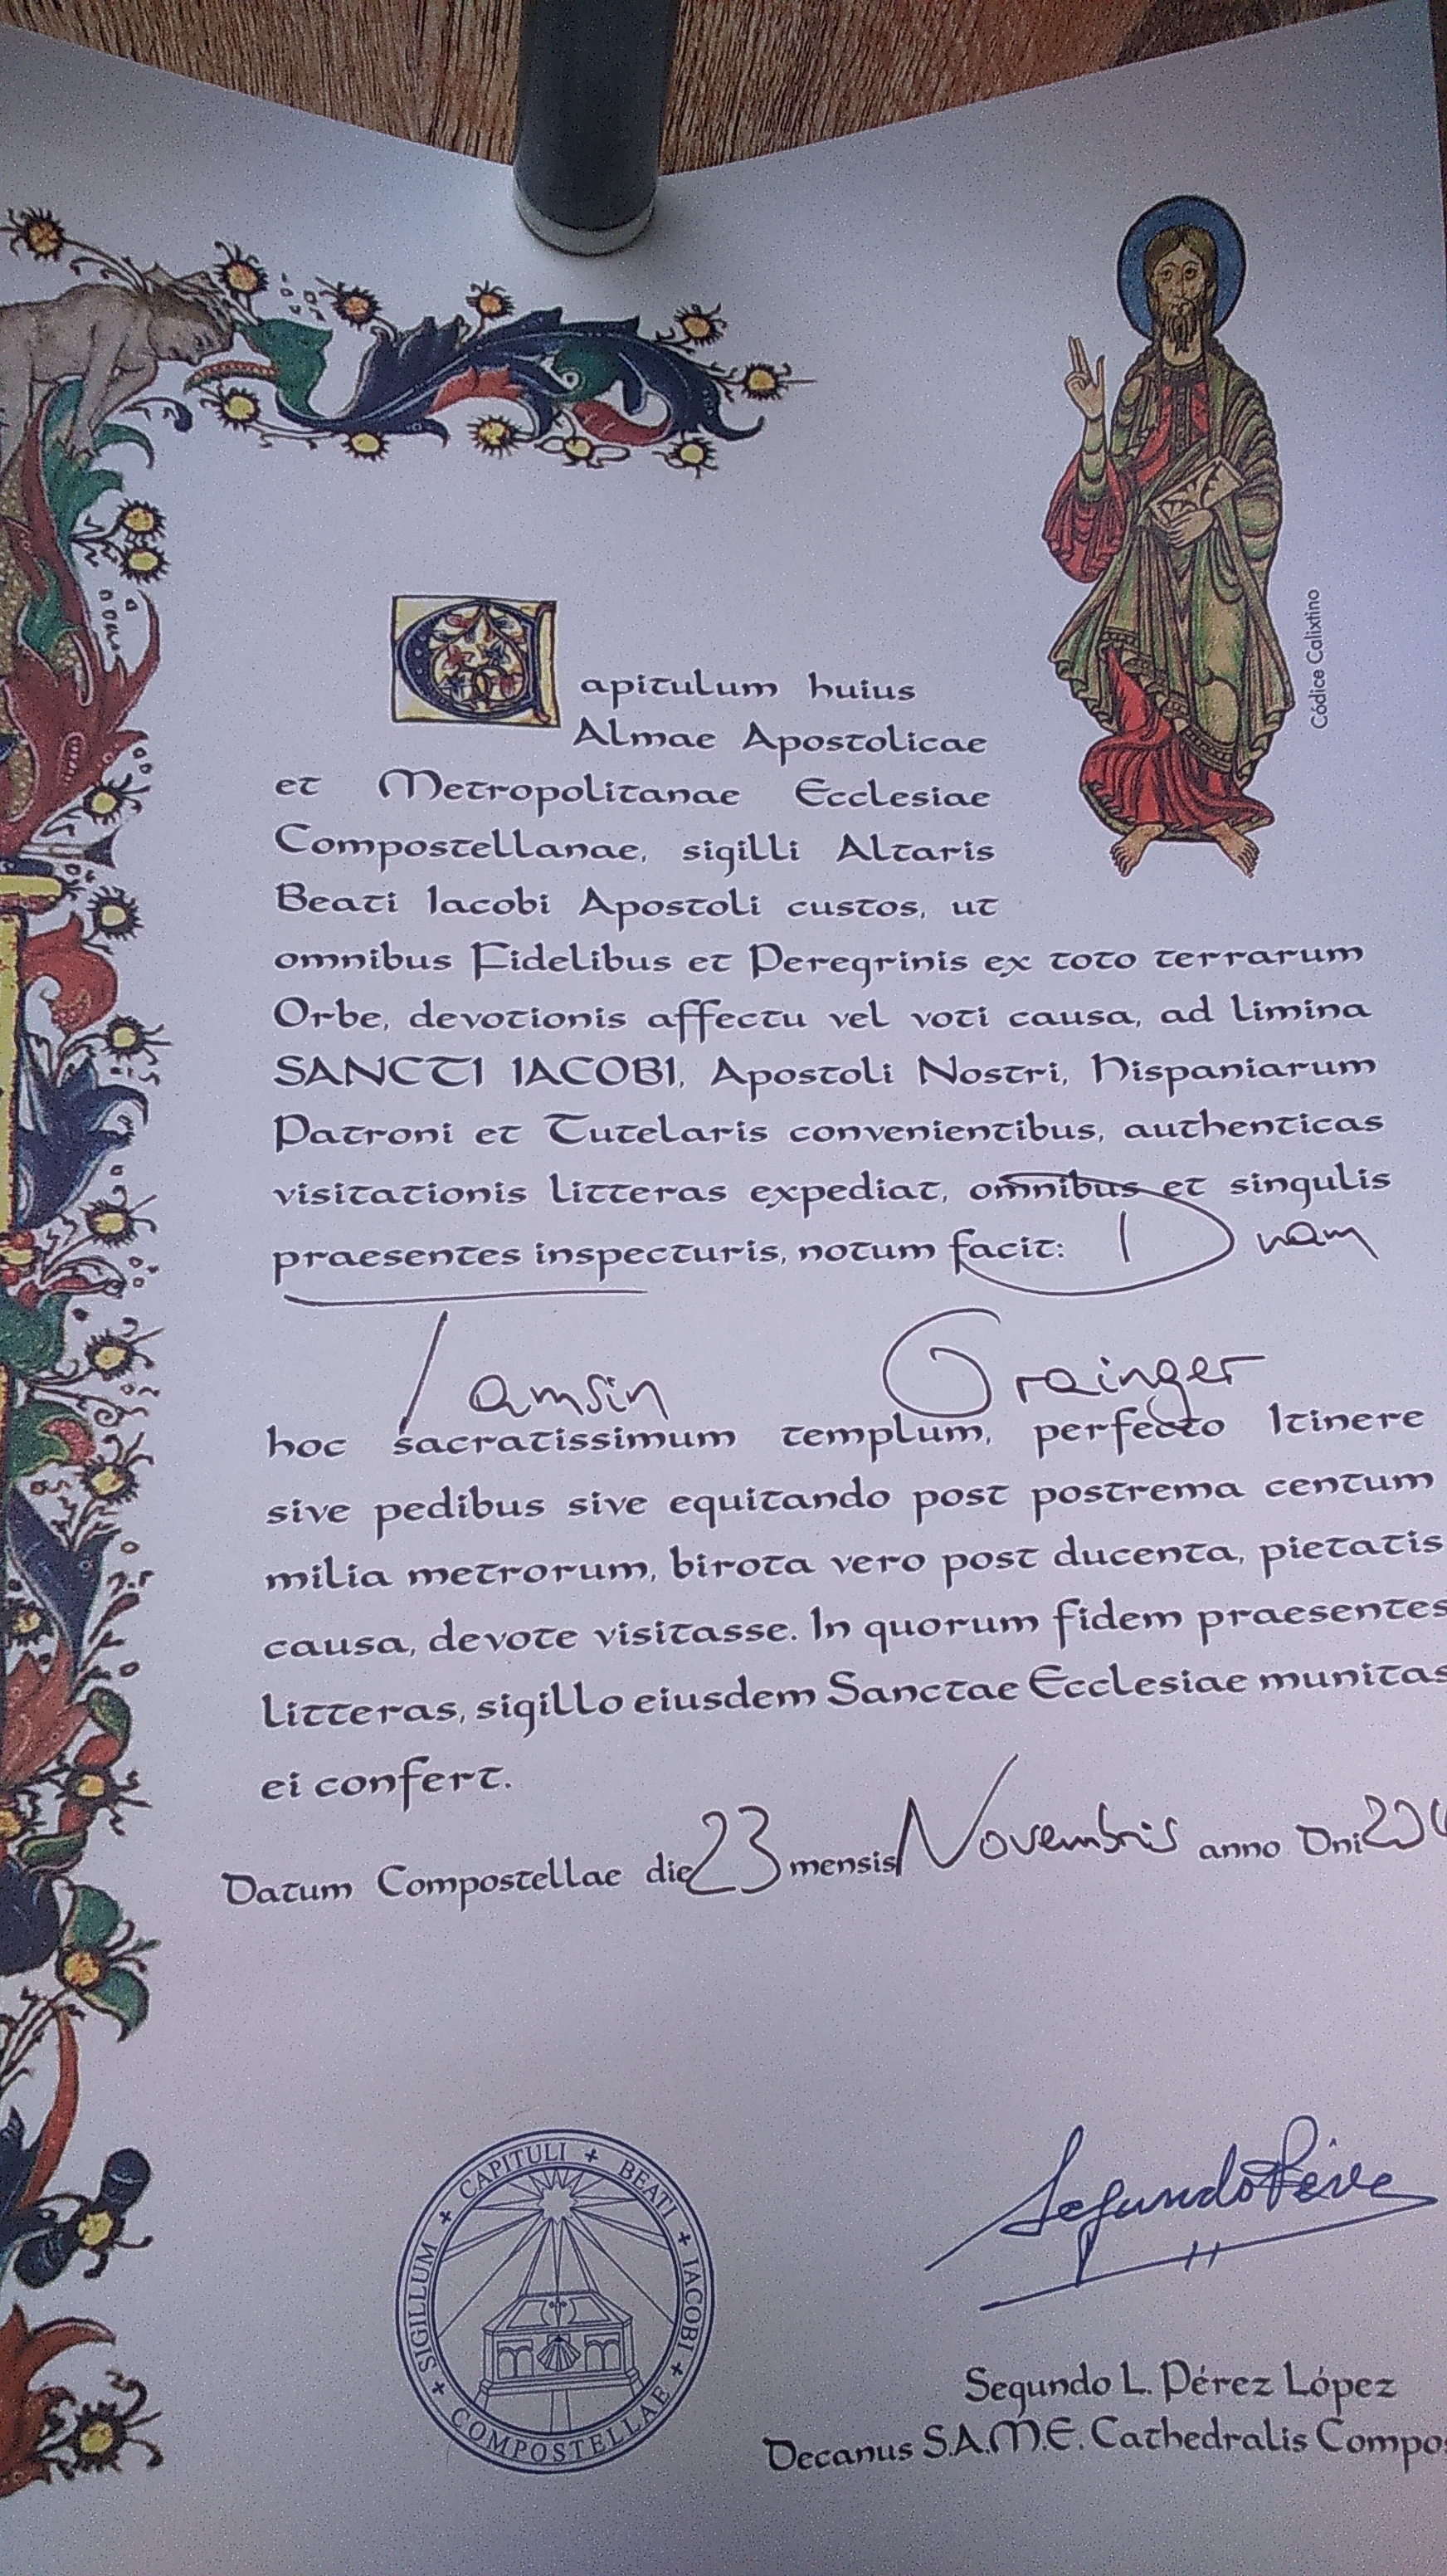 Capitulum huius
Almae Apostolicae
et Metropolitanae Ecclesiae
Compostellanae, sigilli Altaris
Beati Iacobi Apostoli custos, ut
omnibus Fidelibus et Peregrinis ex toto terrarum
Orbe, devotionis affectu vel voti causa, ad limina
SANCTI IACOBI, Apostoli Nostri, Hispaniarum
Patroni et Tutelaris convenientibus, authenticas
visitationis litteras expediat, omnibus et singulis
praesentes inspecturis, notum facit: Dnam
Tamsin Grainger
hoc sacratissimum templum, perfecto Itinere
sive pedibus sive equitando post postrema centum
milia metrorum, birota vero post ducenta, pietatis
causa, devote visitasse. In quorum fidem praesentes
litteras, sigillo eiusdem Sanctae Ecclesiae munitas
ei confert.
Datum Compostellae die 23 mensis Novembris anno Dni
Códice Calixtino
SIGILLUM + CAPITULI + BEATI + IACOBI + COMPOSTELLAE +
Segundo Pérez
Segundo L. Pérez López
Decanus S.A.M.E. Cathedralis Compos